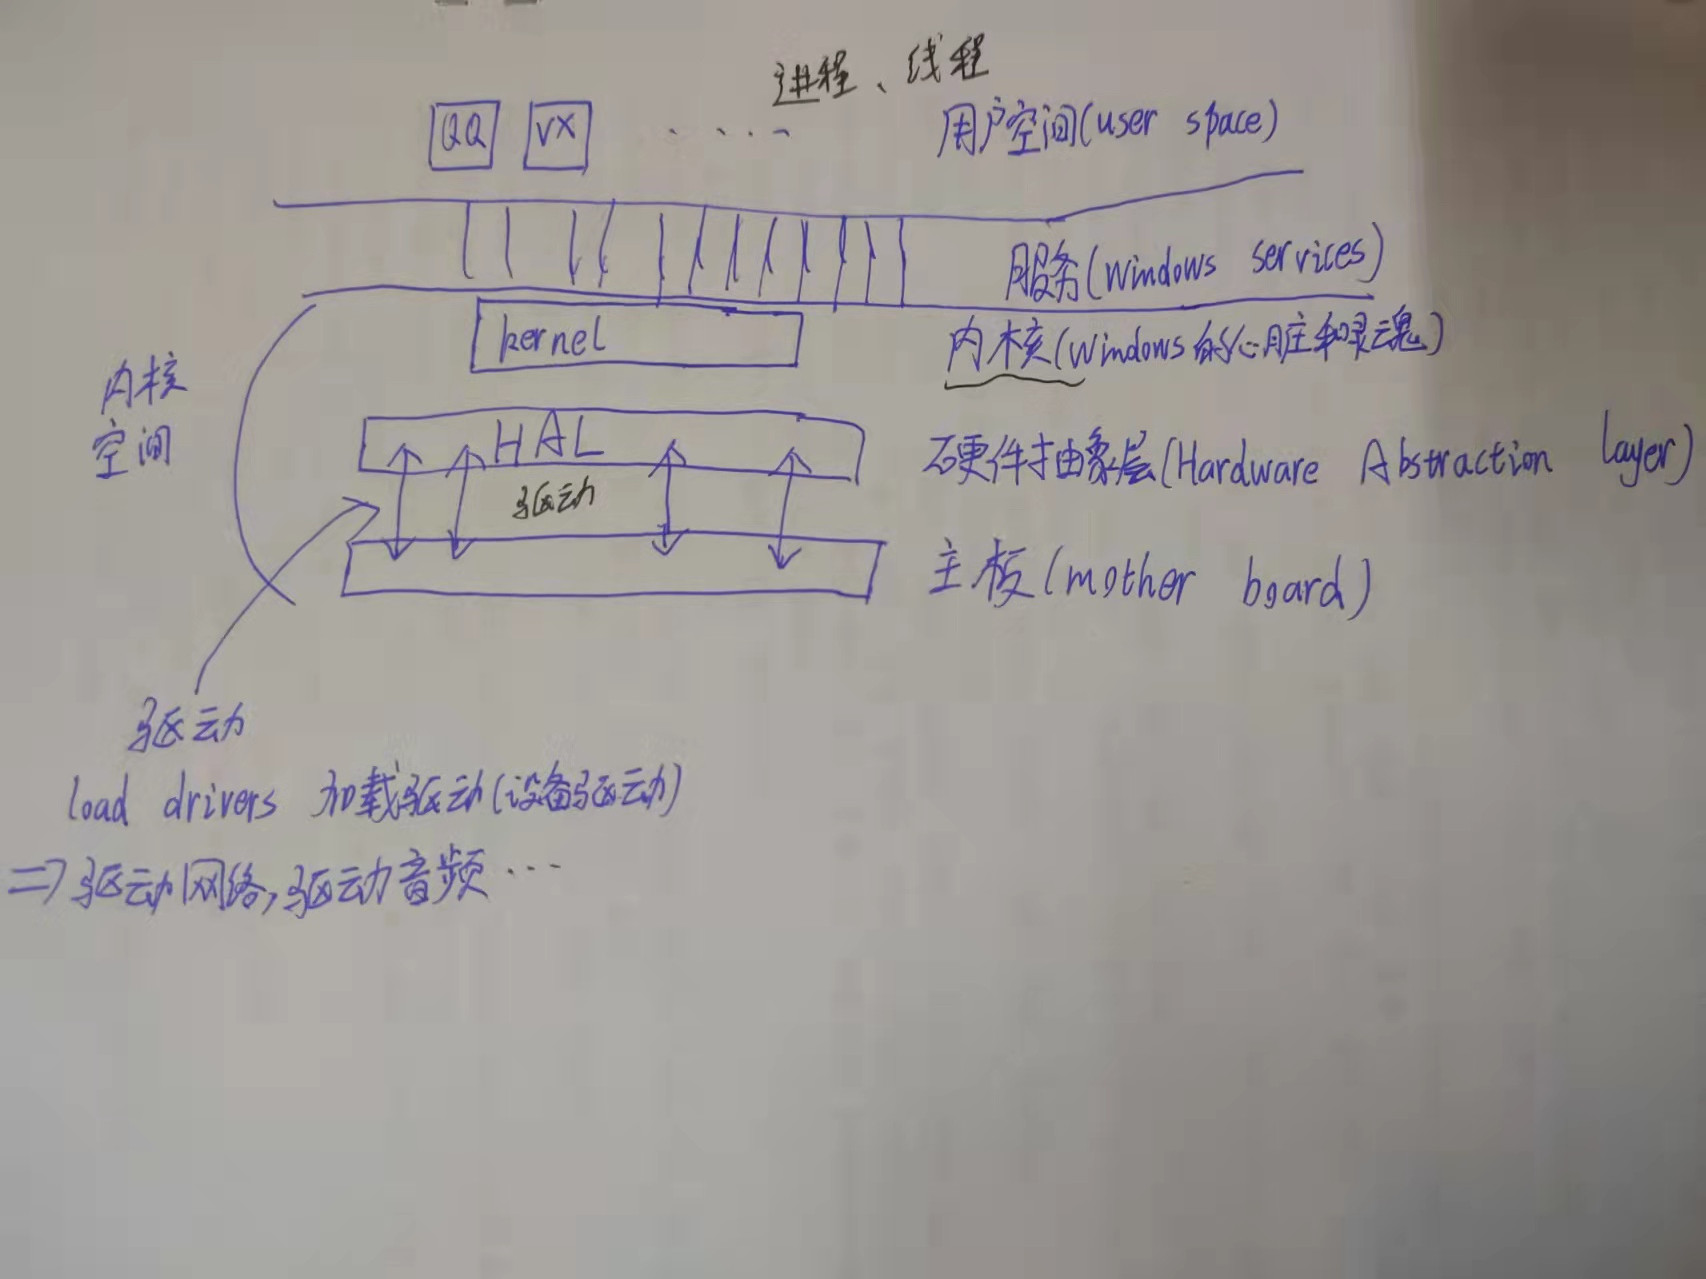 进程、线程
QQ VX .... 用户空间(user space)
服务(Windows services)
kernel 内核(Windows的心脏和灵魂)
内核
空间
HAL 硬件抽象层(Hardware Abstraction layer)
驱动
主板(mother board)
驱动
load drivers 加载驱动(设备驱动)
⇒驱动网络,驱动音频…